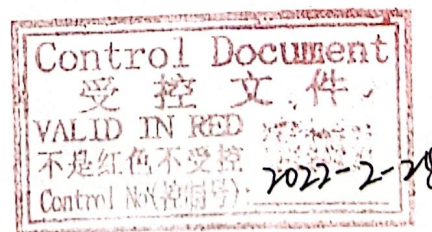 Control Document
受控文件
VALID IN RED
不是红色不受控
Control No(控制号): 2022-2-28